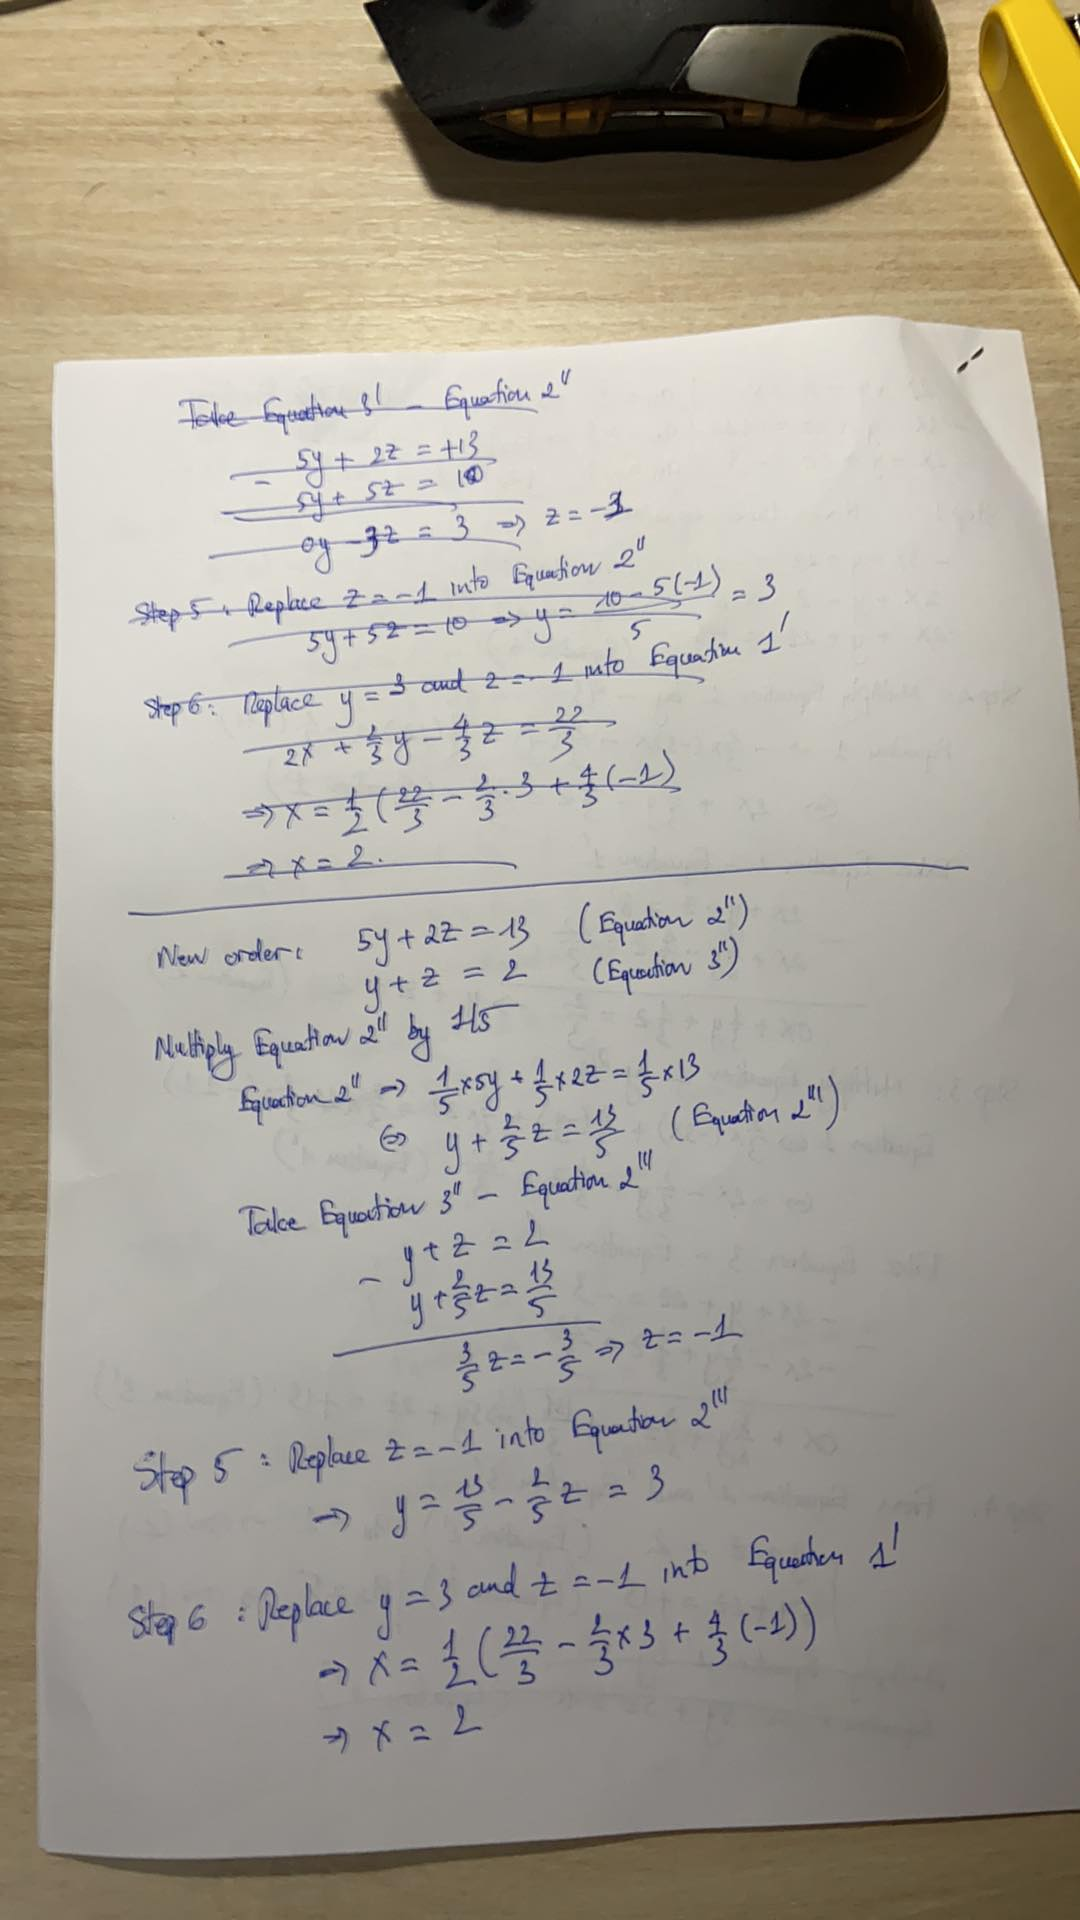 Take Equation 3' - Equation 2"
- 5y + 2z = +13
5y + 5z = 10
0y - 3z = 3 => z = -1
Step 5: Replace z = -1 into Equation 2"
5y + 5z = 10 => y = 10 - 5(-1) / 5 = 3
Step 6: Replace y = 3 and z = -1 into Equation 1'
2x + 2/3 y - 4/3 z = 22/3
=> x = 1/2 ( 22/3 - 2/3 . 3 + 4/3 (-1)
=> x = 2.
New order: 5y + 2z = 13 (Equation 2")
y + z = 2 (Equation 3")
Multiply Equation 2" by 1/5
Equation 2" => 1/5 x 5y + 1/5 x 2z = 1/5 x 13
<=> y + 2/5 z = 13/5 (Equation 2"')
Take Equation 3" - Equation 2"'
- y + z = 2
y + 2/5 z = 13/5
3/5 z = - 3/5 => z = -1
Step 5 : Replace z = -1 into Equation 2"'
=> y = 13/5 - 2/5 z = 3
Step 6 : Replace y = 3 and z = -1 into Equation 1'
=> x = 1/2 ( 22/3 - 2/3 x 3 + 4/3 (-1))
=> x = 2